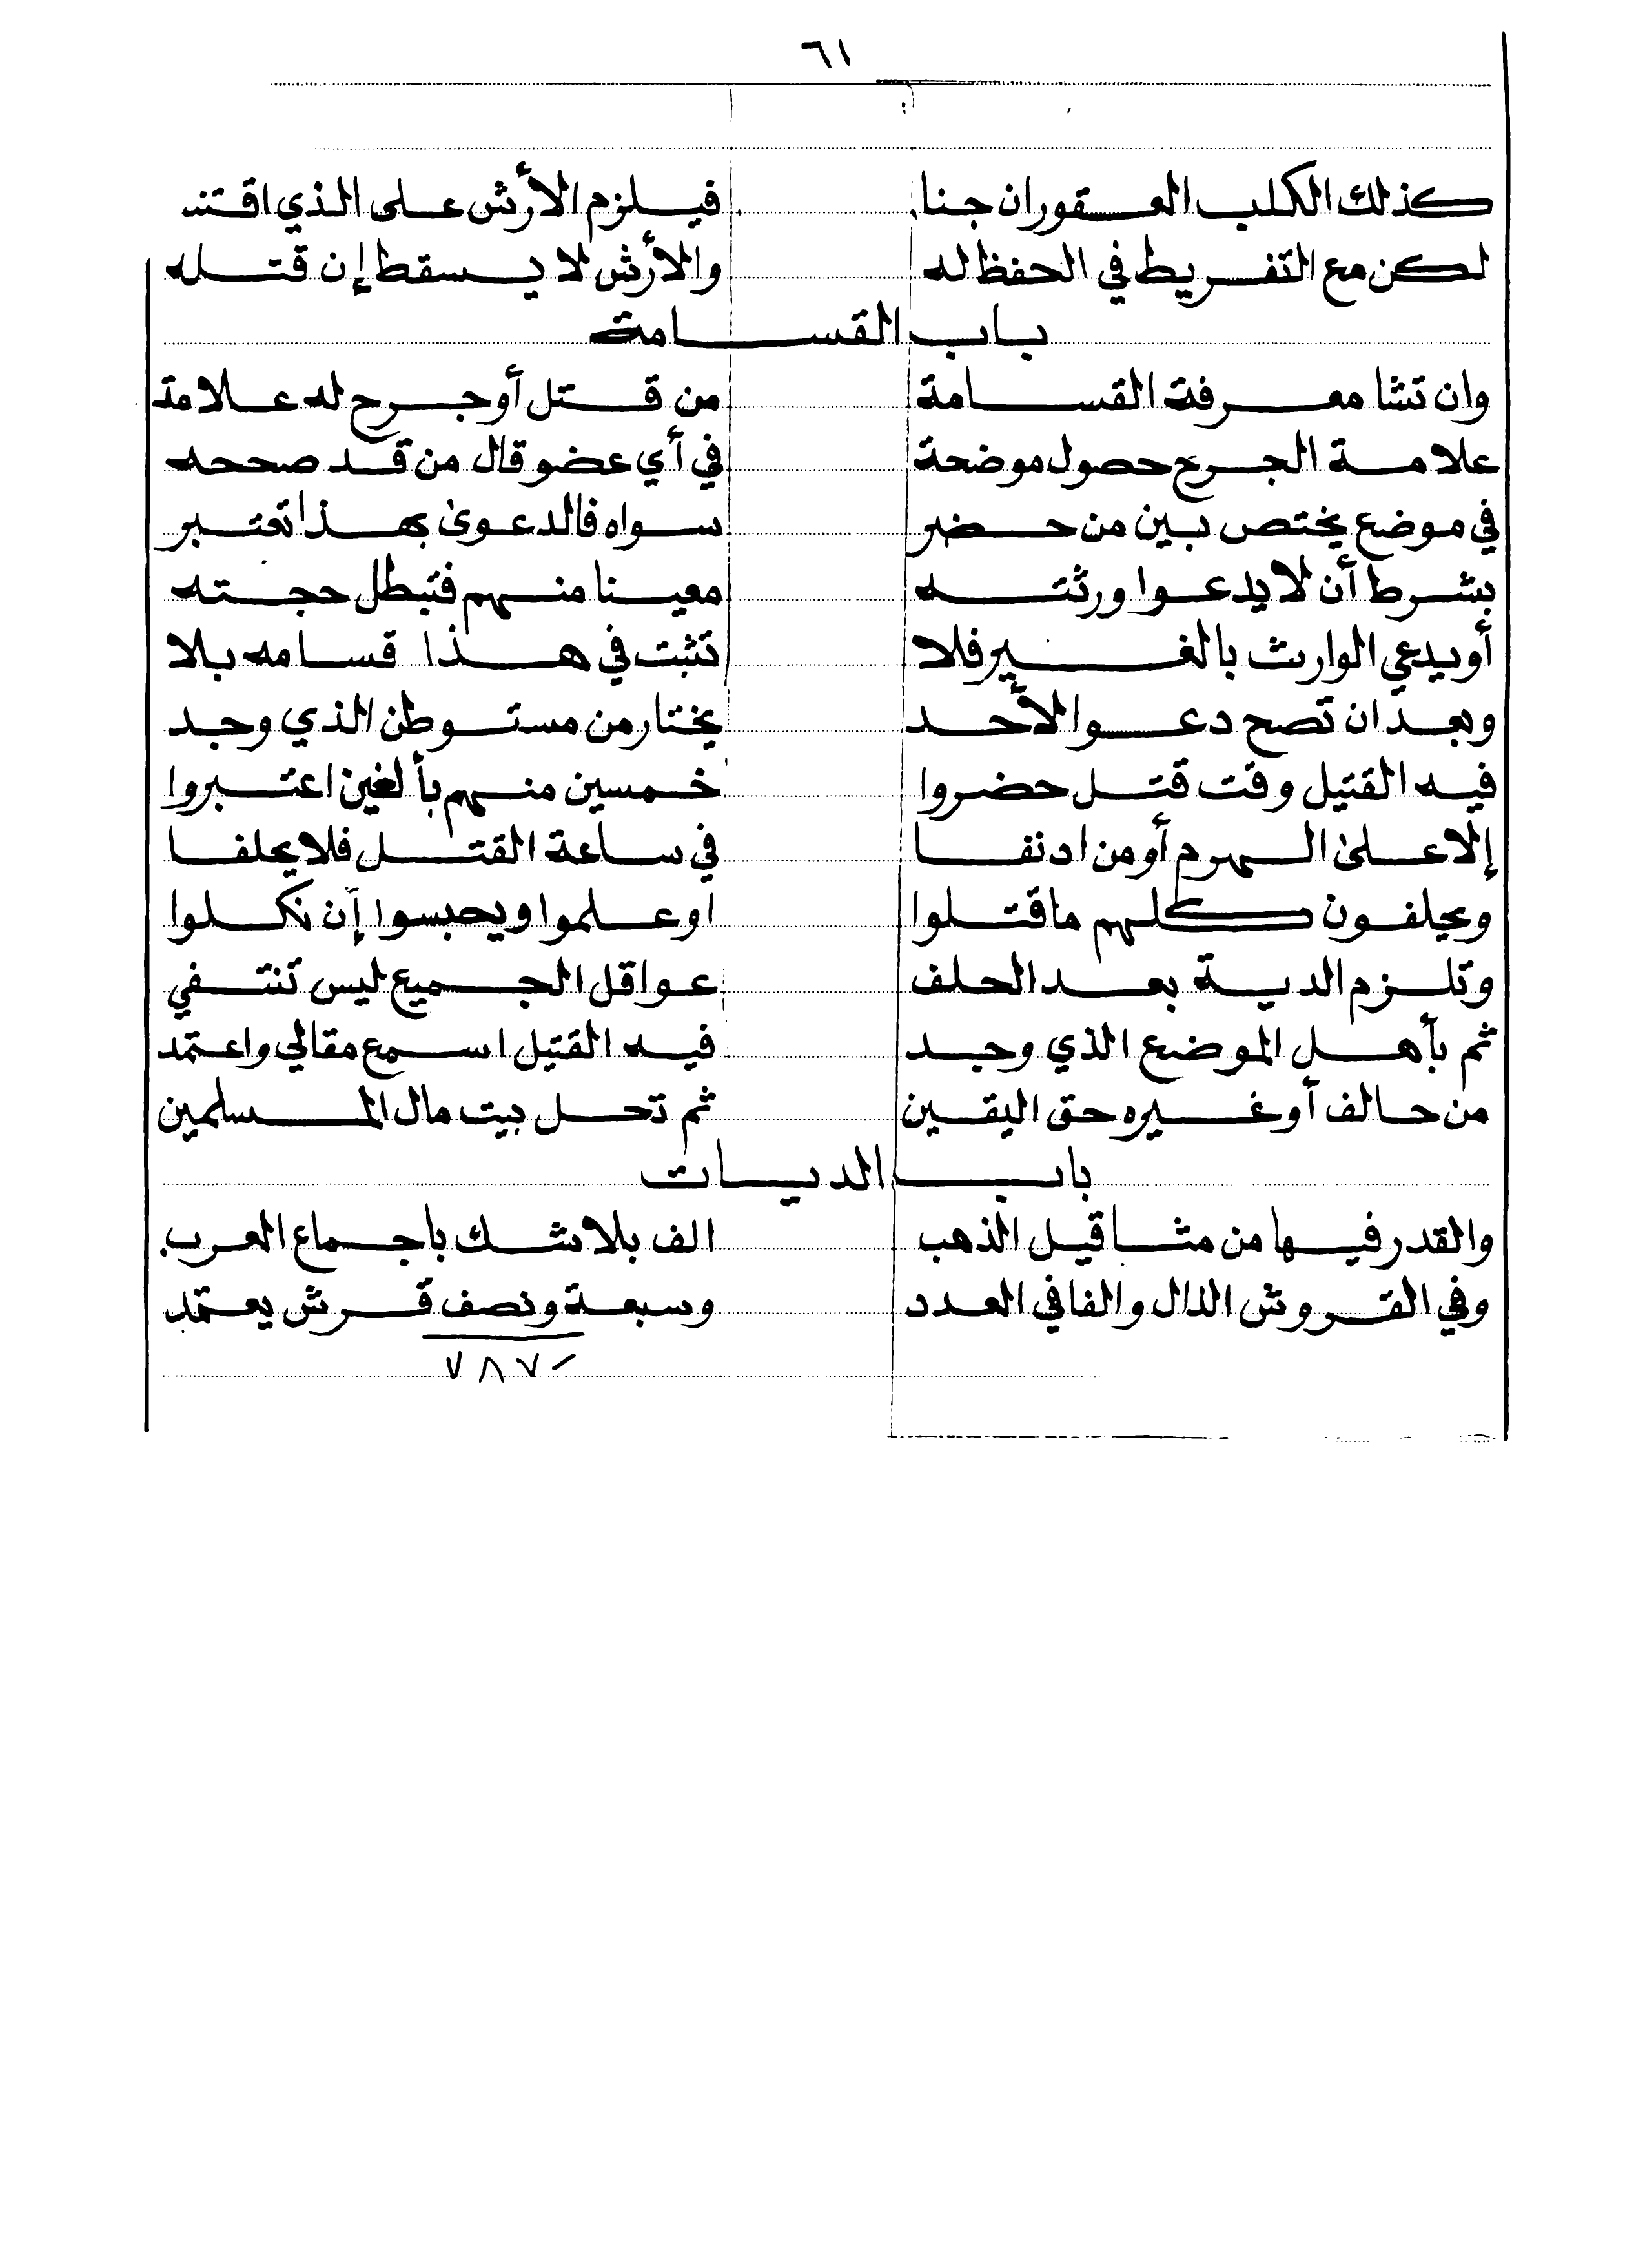 ٦١
كذلك الكلب العقور ان جنا فيلزم الأرش على الذي اقتنى
لكن مع التفريط في الحفظ له والأرش لا يسقط إن قتله
باب القسامة
وان تشا معرفة القسامة من قتل أو جرح له علامة
علامة الجرح حصول موضحة في أي عضو قال من قد صححه
في موضع يختص بين من حضر سواه فالدعوى بهذا تعتبر
بشرط أن لا يدعوا ورثته معينا منهم فتبطل حجته
أو يدعي الوارث بالغير فلا تثبت في هذا قسامه بلا
وبعد ان تصح دعوا لأحد يختار من مستوطن الذي وجد
فيه القتيل وقت قتل حضروا خمسين منهم بألغين اعتبروا
إلا على الهرم أو من ادنفا في ساعة القتل فلا يحلفا
ويحلفون كلهم ما قتلوا او علموا ويحبسوا إن نكلوا
وتلزم الدية بعد الحلف عواقل الجميع ليس تنتفي
ثم بأهل الموضع الذي وجد فيه القتيل اسمع مقالي واعتمد
من حالف أو غيره حق اليقين ثم تحل بيت مال المسلمين
باب الديات
والقدر فيها من مثاقيل الذهب الف بلا شك باجماع العرب
وفي القروش الذال والفا في العدد وسبعة ونصف قرش يعتمد
٧٨٧